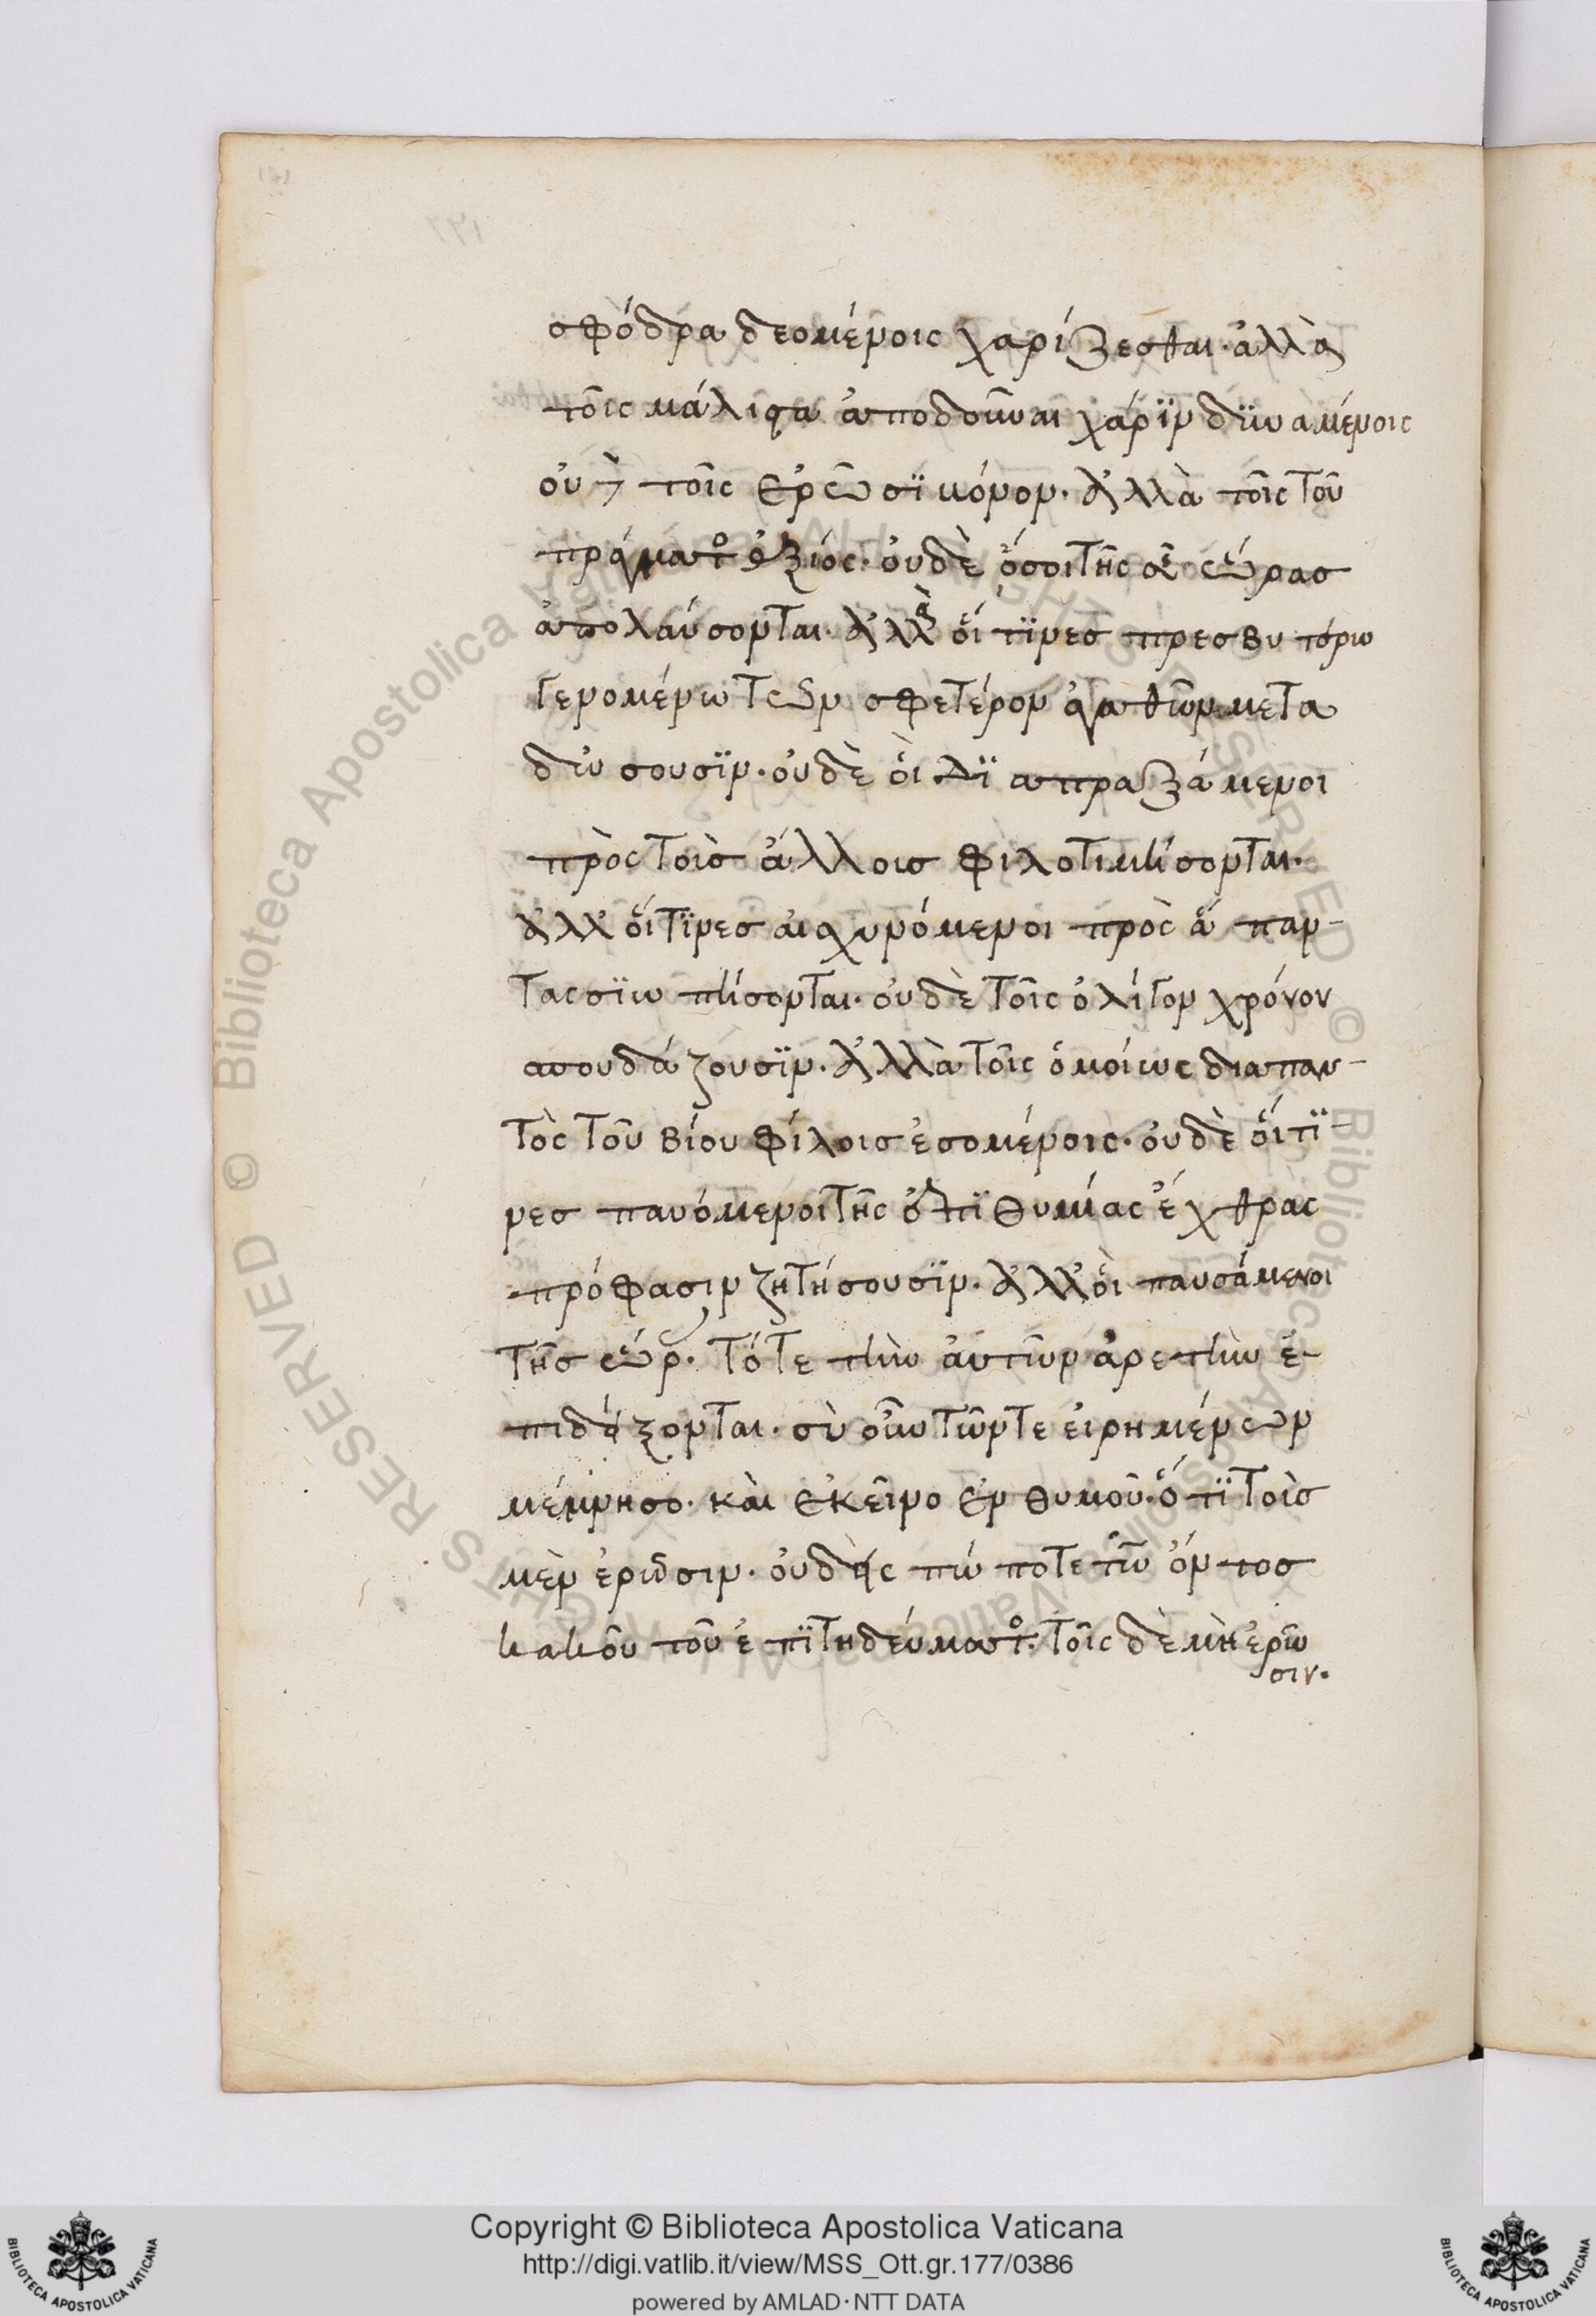 σφόδρα δεομένοις χαρίζεσθαι· ἀλλὰ
τοῖς μάλιστα ἀποδοῦναι χάρϊν δϋναμένοις
οὐδὲ τοῖς ἐρῶσϊ μόνον· ἀλλὰ τοῖς τοῦ
πράγματος ἀξίοις· οὐδὲ ὅσοι τῆς σῆς ὥρας
ἀπολαύσονται· ἀλλὰ οἵ τϊνες πρεσβυτέρω
γενομένω τῶν σφετέρον ἀγαθῶν μετα
δώσουσϊν· οὐδὲ οἳ δϊαπραξάμενοι
πρὸς τοὺς ἄλλους φιλοτιμήσονται·
ἀλλ' οἵτϊνες αἰσχυνόμενοι πρὸς ἅπαν-
τας σϊωπήσονται· οὐδὲ τοῖς ὀλίγον χρόνον
σπουδάζουσϊν· ἀλλὰ τοῖς ὁμοίως διαπαν-
τὸς τοῦ βίου φίλοις ἐσομένοις· οὐδὲ οἵτϊ-
νες παυόμενοι τῆς ἐπϊθυμίας ἔχθρας
πρόφασιν ζητήσουσϊν· ἀλλ' οἳ παυσάμενοι
τῆς ὥρας· τότε τὴν αὐτῶν ἀρετὴν ἐ-
πιδείξονται· σὺ οὖν τῶν τε εἰρημένων
μέμνησο· καὶ ἐκεῖνο ἐνθυμοῦ· ὅτϊ τοὺς
μὲν ἐρῶσιν· οὐδεὶς πώποτε τῶν ὄντος
κακοῦ τοῦ ἐπϊτηδεύματος· τοῖς δὲ μὴ ἐρῶ
σιν·
Copyright © Biblioteca Apostolica Vaticana
http://digi.vatlib.it/view/MSS_Ott.gr.177/0386
powered by AMLAD·NTT DATA